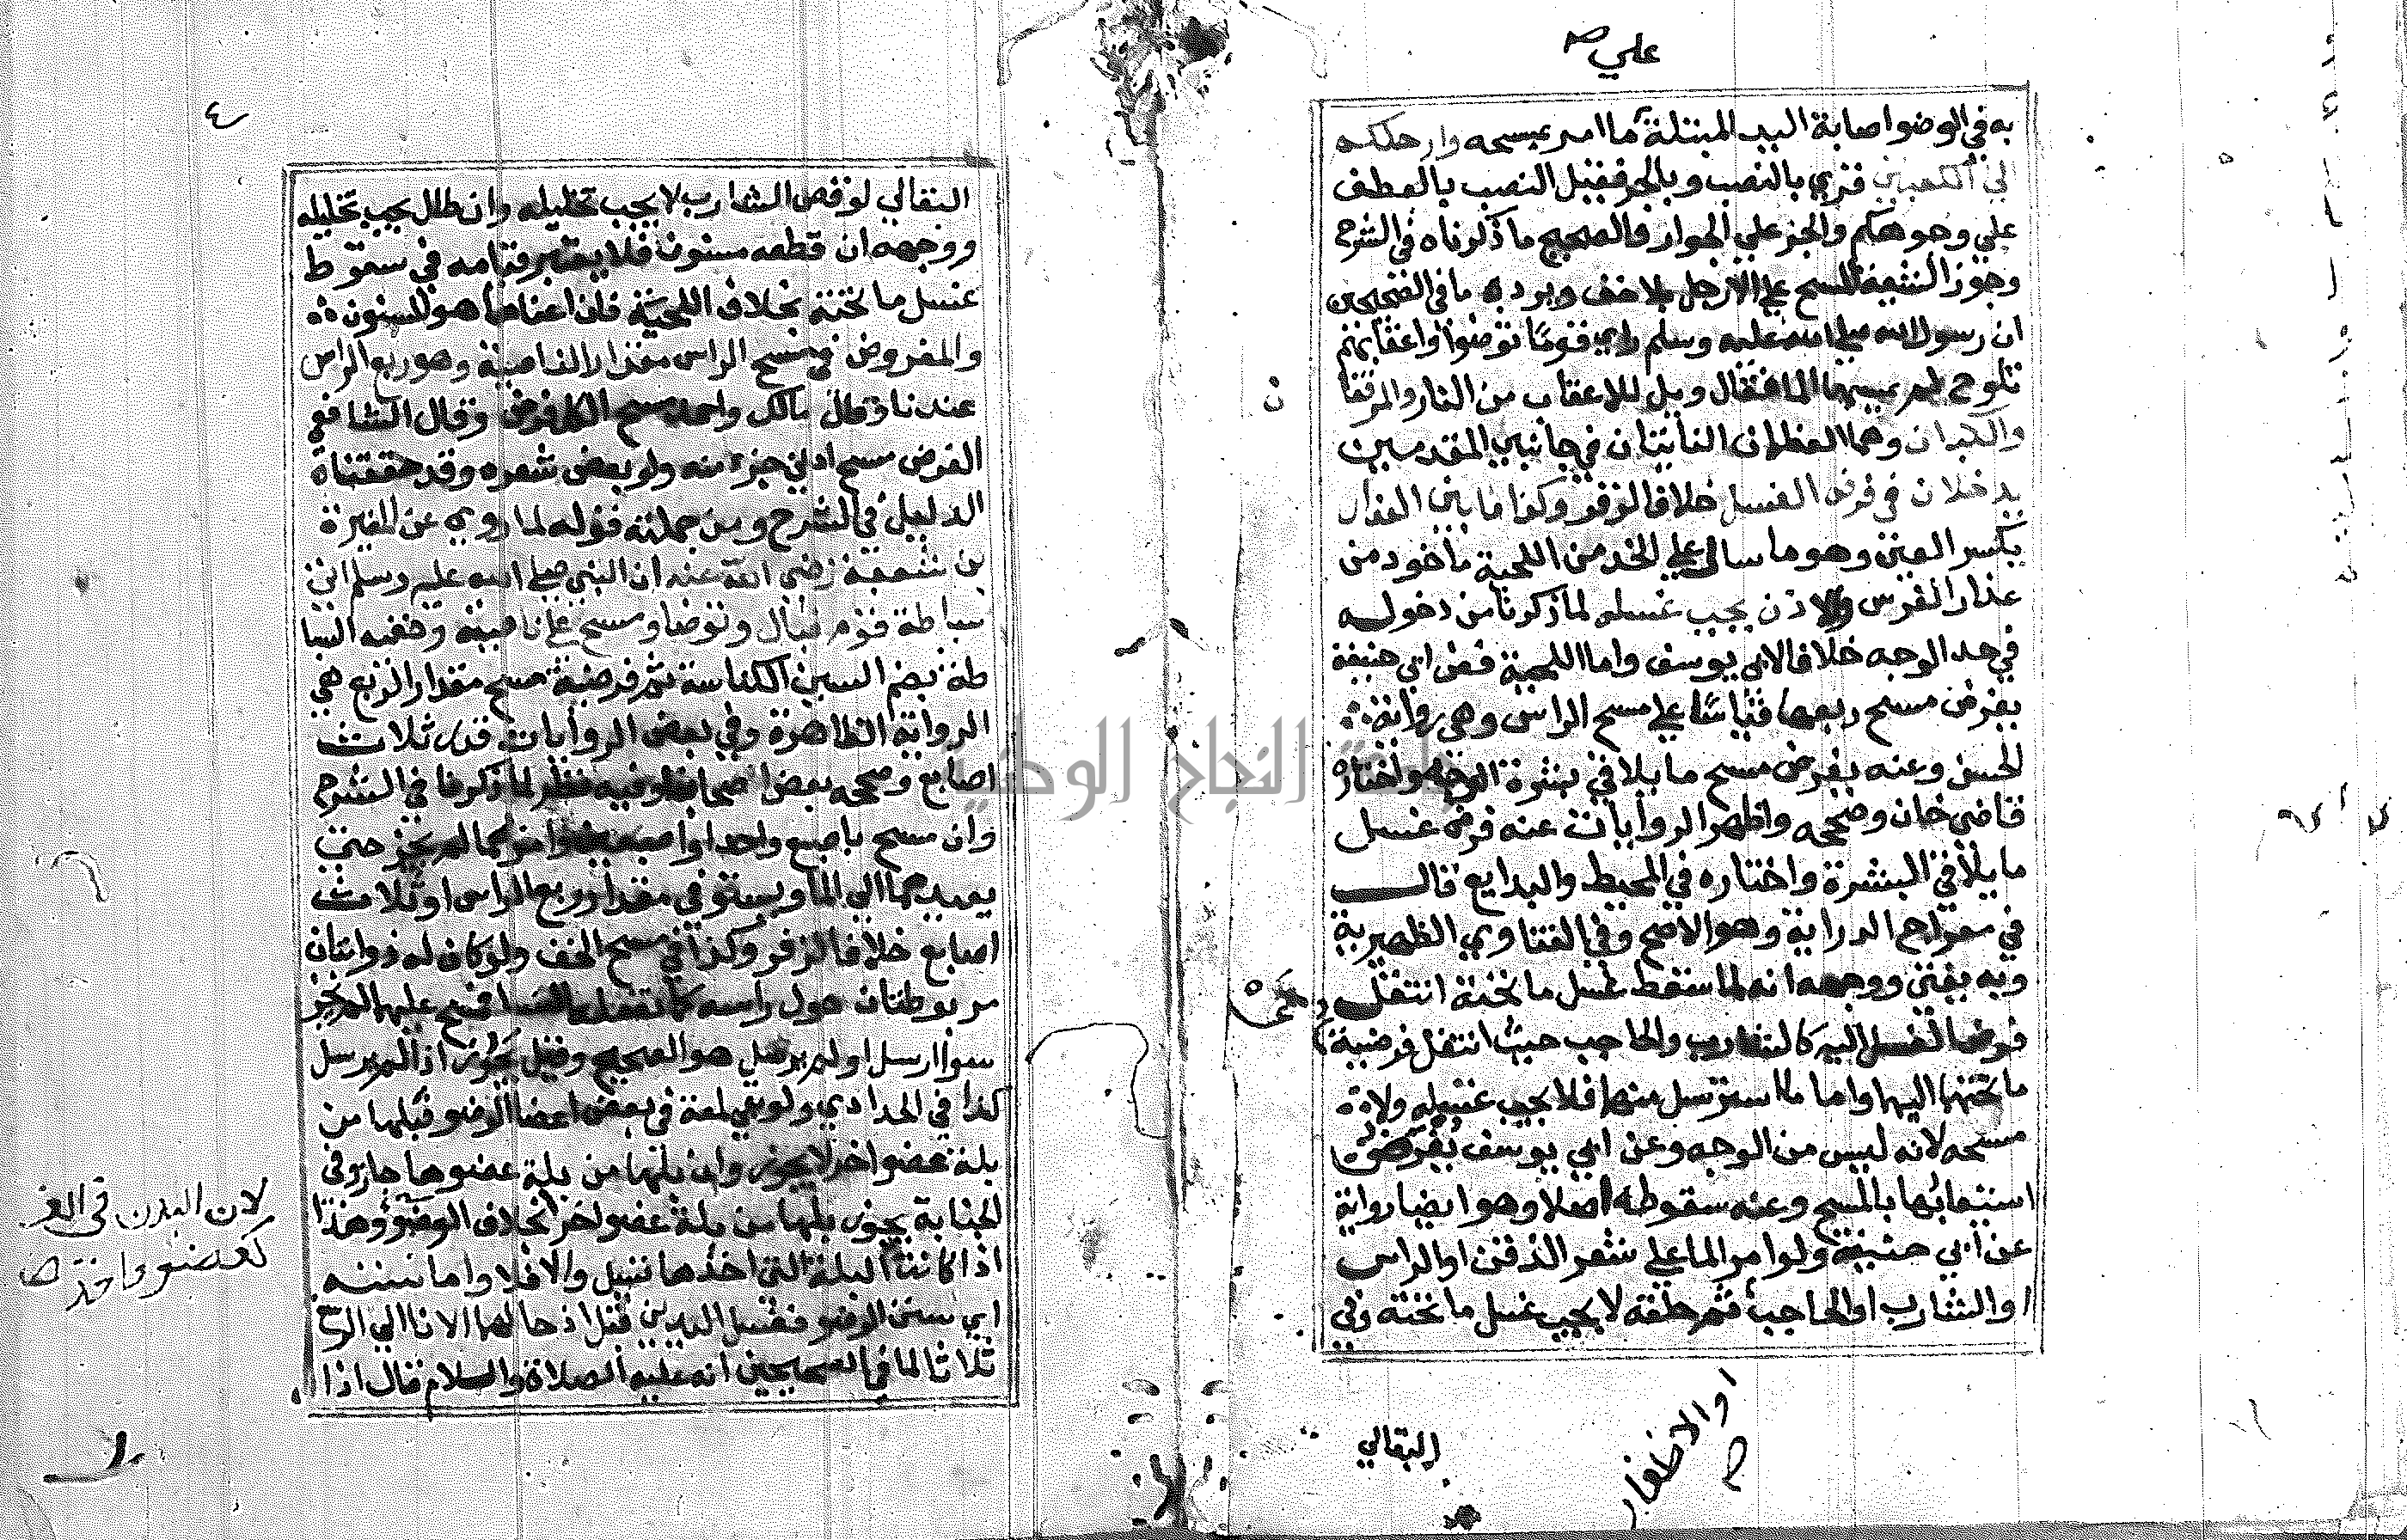 علي صح
به في الوضو اصابة اليد المبتلة ما امر بمسحه وارجلكم
الي الكعبين قري بالنصب وبالجر فقيل النصب بالعطف
علي وجوهكم والجر علي الجوار والصحيح ما ذكرناه في الشرح
وجوز الشيعة المسح علي الارجل بلا خف ويرده ما في الصحيحين
ان رسول الله صلي الله عليه وسلم راي قوما توضوا واعقابهم
تلوح لم يمسها الما فقال ويل للاعقاب من النار والمرفقا
والكعبان وهما العظمان الناتيان في جانبي القدمين
يدخلان في فرض الغسل خلافا لزفر وكذا ما بين العذار
بكسر العين وهو ما سال علي الخد من اللحية ماخوذ من
عذار الفرس والاذن يجب غسله لما ذكرنا من دخوله
في حد الوجه خلافا لابي يوسف واما اللحية فعن ابي حنيفة
يفرض مسح ربعها قياسا علي مسح الراس وهي رواية
الحسن وعنه يفرض مسح ما يلاقي بشرة الوجه واختاره
قاضي خان وصححه واظهر الروايات عنه فرض غسل
ما يلاقي البشرة واختاره في المحيط والبدايع قال
في معراج الدراية وهو الاصح وفي الفتاوي الظهيرية
وبه يفتي ووجهه انه لما سقط غسل ما تحته انتقل
فرض الغسل اليه كالشارب والحاجب حيث انتقل فرضية
ما تحتها اليها واما ما استرسل منها فلا يجب غسله ولا
مسحه لانه ليس من الوجه وعن ابي يوسف يفرض
استيعابها بالمسح وعنه سقوطه اصلا وهو ايضا رواية
عن ابي حنيفة ولو امر الما علي شعر الذقن او الراس
او الشارب او الحاجب ثم حلقه لا يجب غسل ما تحته وفي
او الاظفار صح
البقالي
٤
البقالي لو قص الشارب لا يجب تخليله وان طال يجب تخليله
ووجهه ان قطعه مسنون فلا يعتبر قيامه في سقوط
غسل ما تحته بخلاف اللحية فان اعفاها هو المسنون
والمفروض في مسح الراس مقدار الناصية وهو ربع الراس
عندنا وقال مالك واحمد مسح الكل فرض وقال الشافعي
الفرض مسح ادني جزء منه ولو بعض شعره وقد حققناه
الدليل في الشرح ومن جملته قوله لما روي عن المغيرة
بن شعبة رضي الله عنه ان النبي صلي الله عليه وسلم اتي
سباطة قوم فبال وتوضا ومسح علي ناصيته وخفيه السبا
طة بضم السين الكناسة ثم فرضية مسح مقدار الربع هي
الرواية الظاهرة وفي بعض الروايات قدر ثلاث
اصابع وصححه بعض اصحابنا وفيه نظر لما ذكرنا في الشرح
وان مسح باصبع واحد او اصبعين لم يجز حتي
يعيدهما الي الما ويستوفي مقدار ربع الراس او ثلاث
اصابع خلافا لزفر وكذا في مسح الخف ولو كان له ذوابتان
مربوطتان حول راسه كما تفعله النسا فمسح عليها لم يجز
سوا ارسل او لم يرسل هو الصحيح وقيل يجوز اذا لم يرسل
كذا في الحدادي ولو بقي لمعة في بعض اعضا الوضو فبلها من
بلة عضو اخر لا يجوز وان بلها من بلة عضوها جاز وفي
الجنابة يجوز بلها من بلة عضو اخر بخلاف الوضوء وهذا
اذا كانت البلة التي اخذها تسيل والا فلا واما سننه
اي سنن الوضو فغسل اليدين قبل ادخالهما الانا الي الرسغ
ثلاثا لما في الصحيحين انه عليه الصلاة والسلام قال اذا
لان البدن في الغ
كعضو واحد صح
جامعة النجاح الوطنية